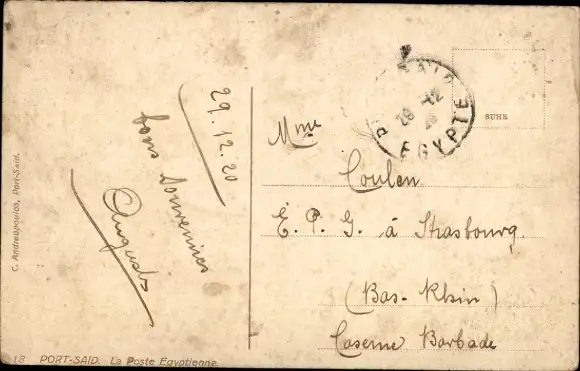 29.12.20
bons souvenirs
Auguste
Mme
Coulen
E. P. G. à Strasbourg.
(Bas-Rhin)
Caserne Barbade
SAID
29 12
EGYPTE
SUHE
C. Andreopoulos, Port-Said.
18 PORT-SAID. La Poste Egyptienne.